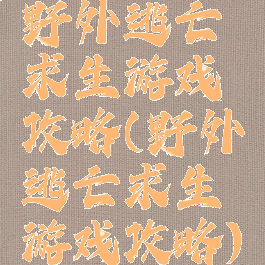 野外逃亡
求生游戏
攻略(野外
逃亡求生
游戏攻略)